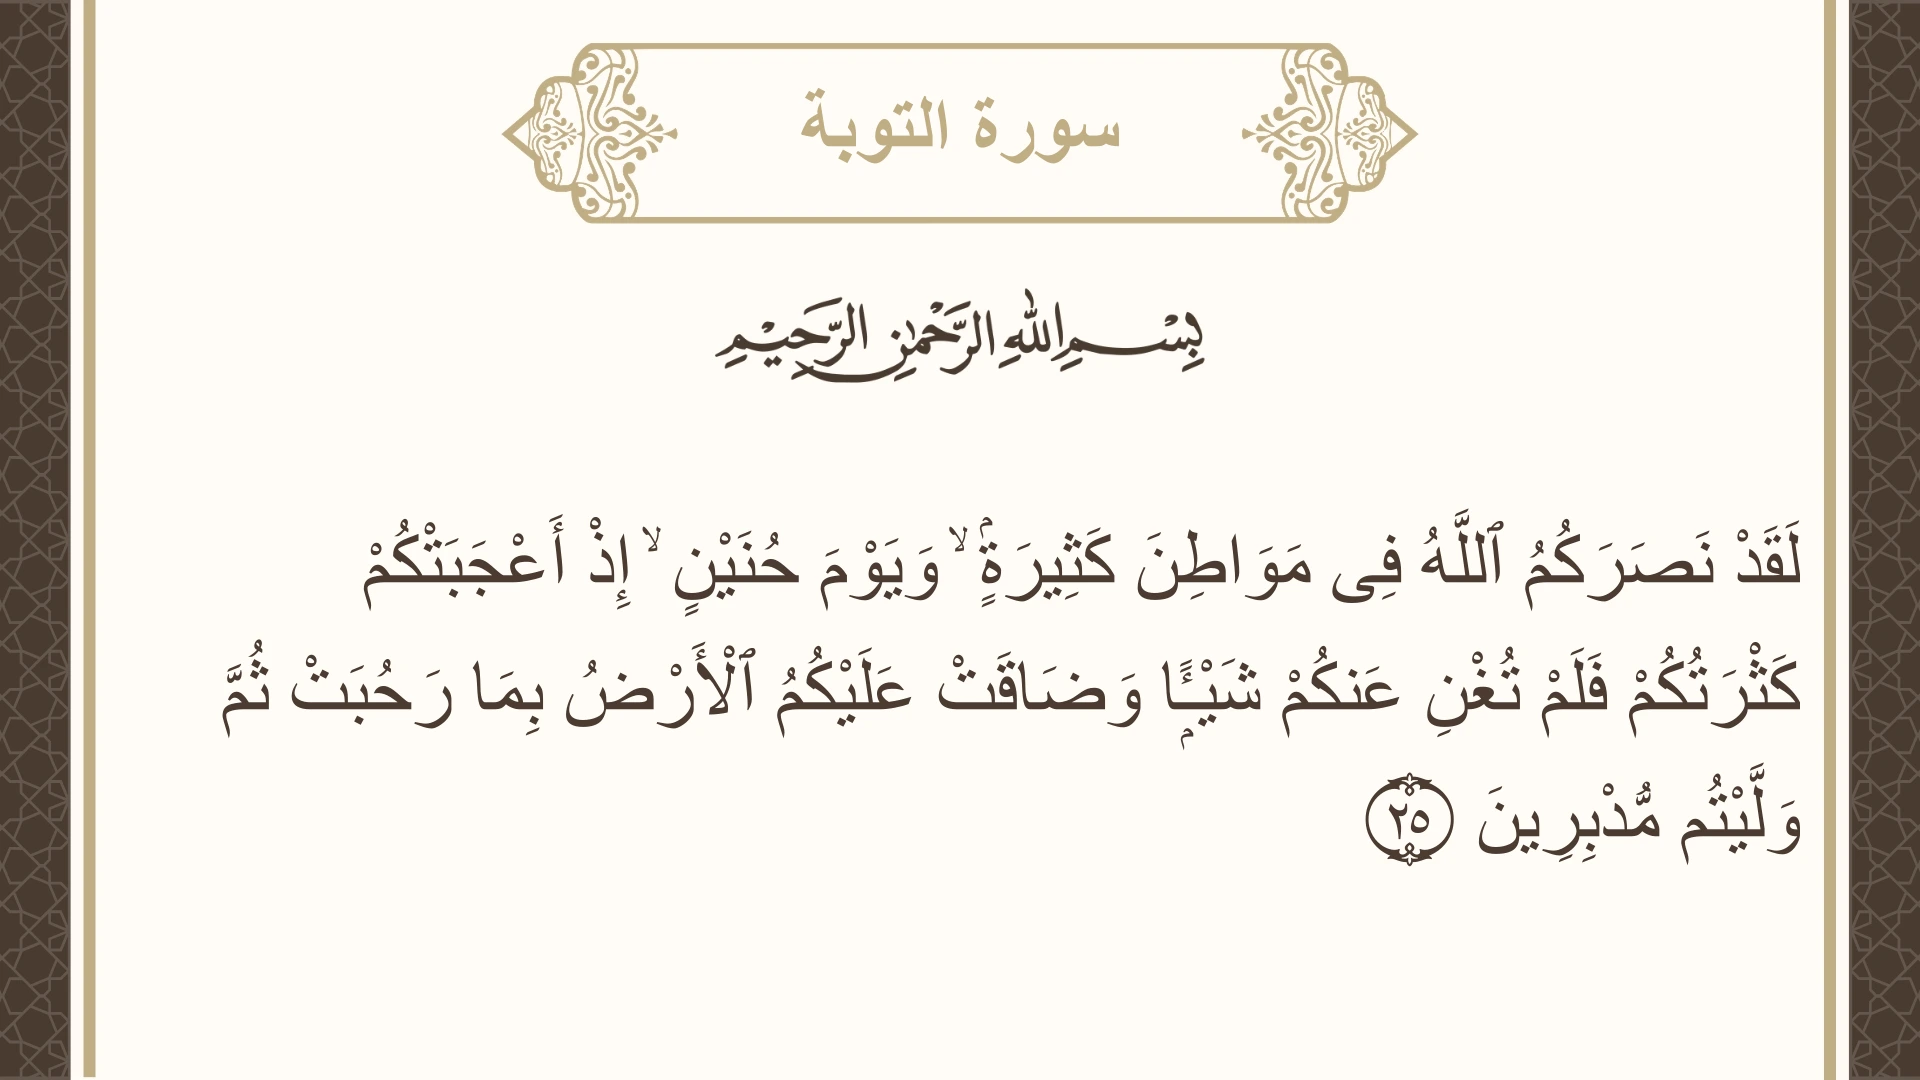 سورة التوبة
بِسْمِ اللهِ الرَّحْمٰنِ الرَّحِيْمِ
لَقَدْ نَصَرَكُمُ ٱللَّهُ فِى مَوَاطِنَ كَثِيرَةٍۢ ۙ وَيَوْمَ حُنَيْنٍ ۙ إِذْ أَعْجَبَتْكُمْ
كَثْرَتُكُمْ فَلَمْ تُغْنِ عَنكُمْ شَيْـًۭٔا وَضَاقَتْ عَلَيْكُمُ ٱلْأَرْضُ بِمَا رَحُبَتْ ثُمَّ
وَلَّيْتُم مُّدْبِرِينَ ٢٥